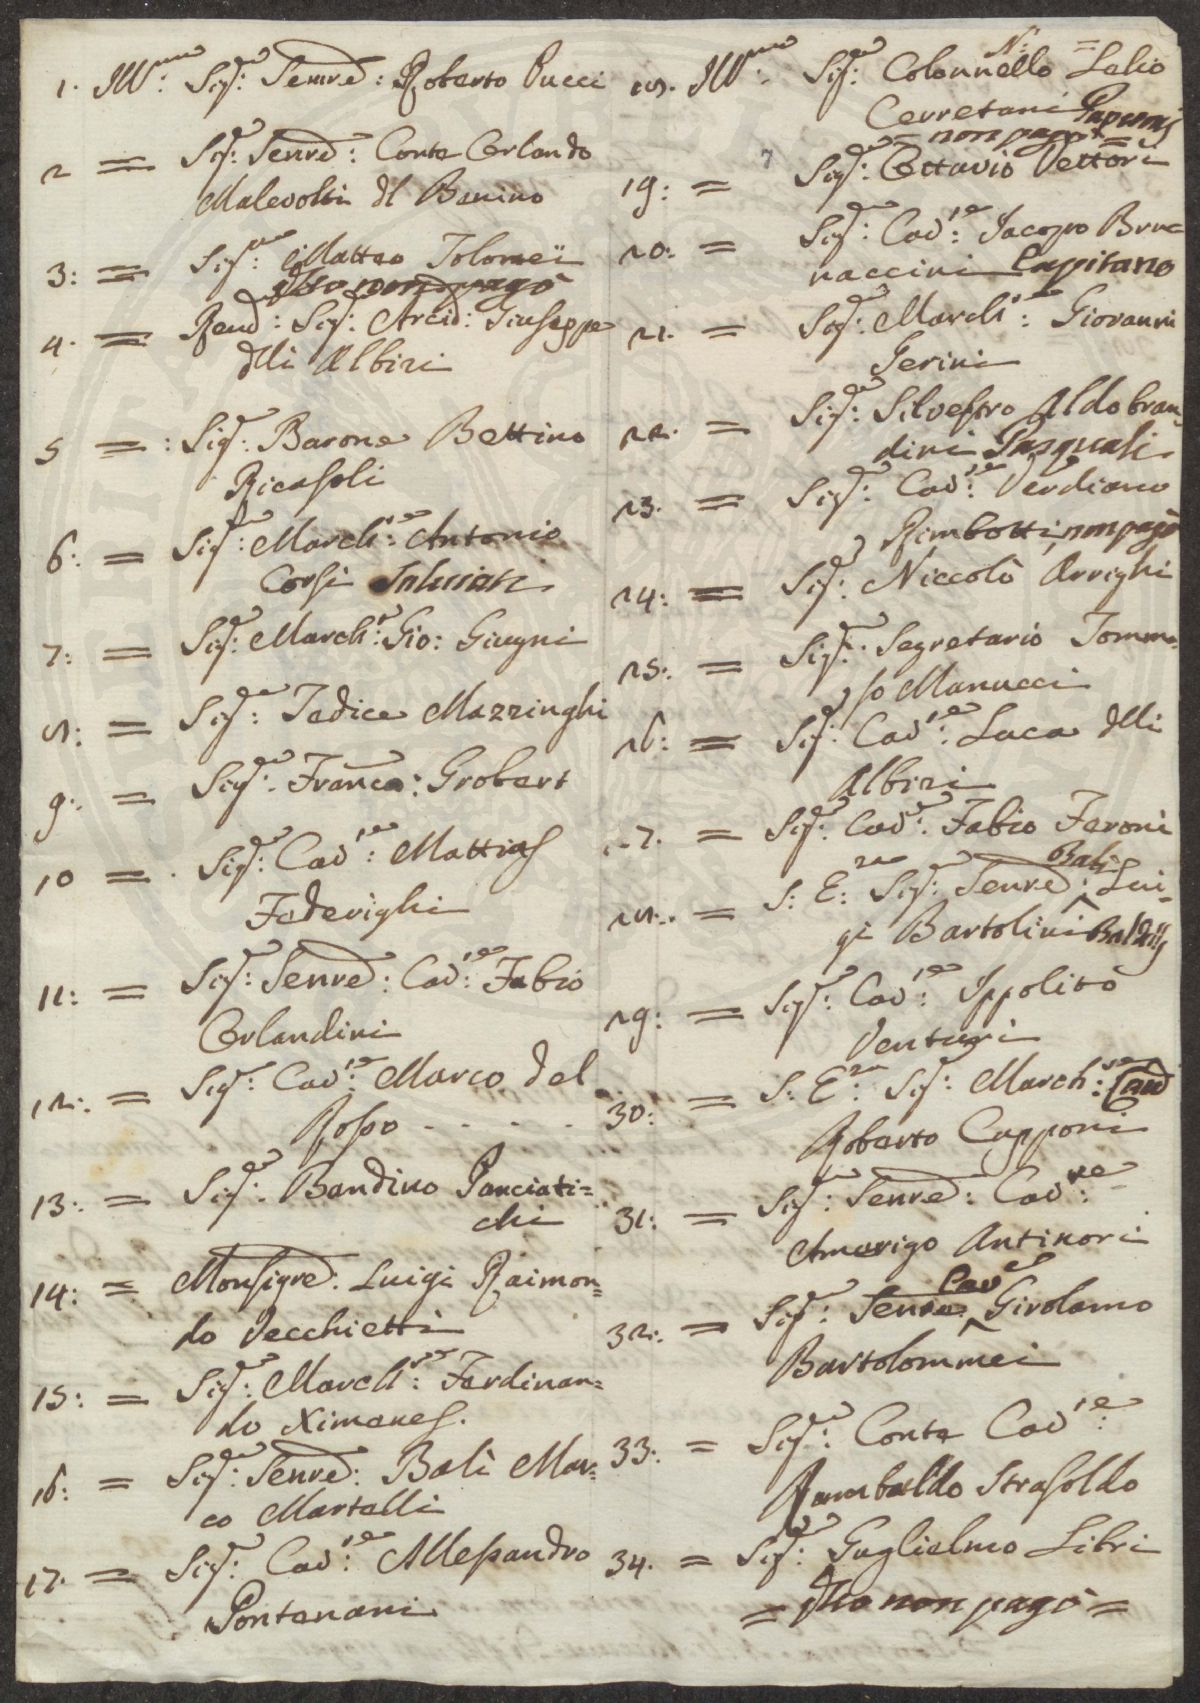 1. Ill:mo Sig:r Senre: Roberto Pucci
2 = Sig:r Senre: Conte Orlando
Malevolti dl Benino
3: = Sig:r Matteo Tolomei
dto non pagò
4. = Rend: Sig: Arcid: Giuseppe
dlli Albizi
5 = : Sig: Barone Bettino
Ricasoli
6: = Sig:r March:se Antonio
Corsi Salviati
7: = Sig:r March:e Gio: Giugni
8: = Sig:r Tedice Mazzinghi
9: = Sig:r Franco: Grobert
10 = . Sig:r Cav:re Mattias
Federighi
11: = Sig:r Senre: Cav:re Fabio
Orlandini
12: = Sig:r Cav:re Marco del
Rosso - - - - .
13: = Sig:r Bandino Panciati=
chi
14: = Monsigre: Luigi Raimon=
do Vecchietti
15: = Sig:r March:se Ferdinan=
do Ximenes.
16: = Sig:r Senre: Balì Mar=
co Martelli
17. = Sig:r Cav:re Allessandro
Pontenani
18. Ill:mo Sig:r Colonnello Lelio
Cerretani
= non pagò =
19: = Sig:r Ottavio Vettori
20: = Sig:r Cav:re Jacopo Bruc
naccini Capitano
21. = Sig:r March:se Giovanni
Gerini
22. = Sig:r Silvestro Aldobran,
dini Pasquali
23. = Sig:r Cav:re Verdiano
Rimbotti non pagò
24: = Sig:r Niccolò Arrighi
25: = Sig:r Segretario Tomma
so Manucci
26: = Sig:r Cav:re Luca dlli
Albizi
27. = Sig:r Cav:re Fabio Feroni
Balì
28: = S: E:za Sig:r Senre: Lui-
gi Bartolini Baldelli
29: = Sig:r Cav:re Ippolito
Venturi
30: = S: E:za Sig:r March:se Cav
Roberto Capponi
31: = Sig:r Senre: Cav:re
Amerigo Antinori
Cav
32: = Sig:r Senre Girolamo
Bartolommei
33: = Sig:r Conte Cav:re
Rambaldo Strasoldo
34. = Sig:r Guglielmo Libri
= dto non pagò =